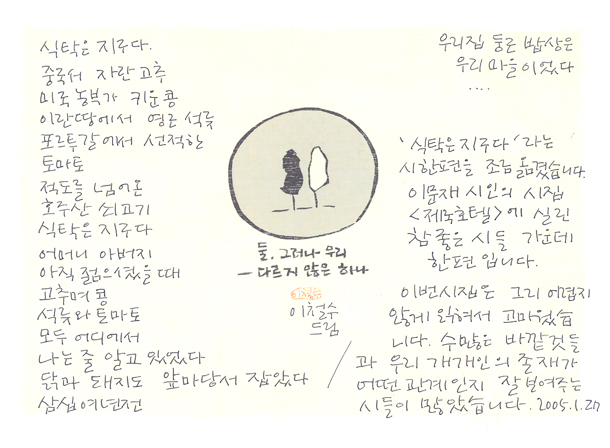 식탁은 지구다.
중국서 자란 고추
미국 농부가 키운 콩
이란 땅에서 영근 석류
포르투갈에서 선적한
토마토
적도를 넘어온
호주산 쇠고기
식탁은 지구다
어머니 아버지
아직 젊으셨을 때
고추며 콩
석류와 토마토
모두 어디에서
나는 줄 알고 있었다
닭과 돼지도 앞마당서 잡았다
삼십여년전
우리집 둥근 밥상은
우리 마을이었다
....
둘. 그러나 우리
— 다르지 않은 하나
이철수
드림
'식탁은 지구다'라는
시 한편을 조금 옮겼습니다.
이문재 시인의 시집
<제국호텔>에 실린
참 좋은 시들 가운데
한편입니다.
이번 시집은 그리 어렵지
않게 읽혀서 고마웠습
니다. 수많은 바깥것들
과 우리 개개인의 존재가
어떤 관계인지 잘 보여주는
시들이 많았습니다. 2005.1.27